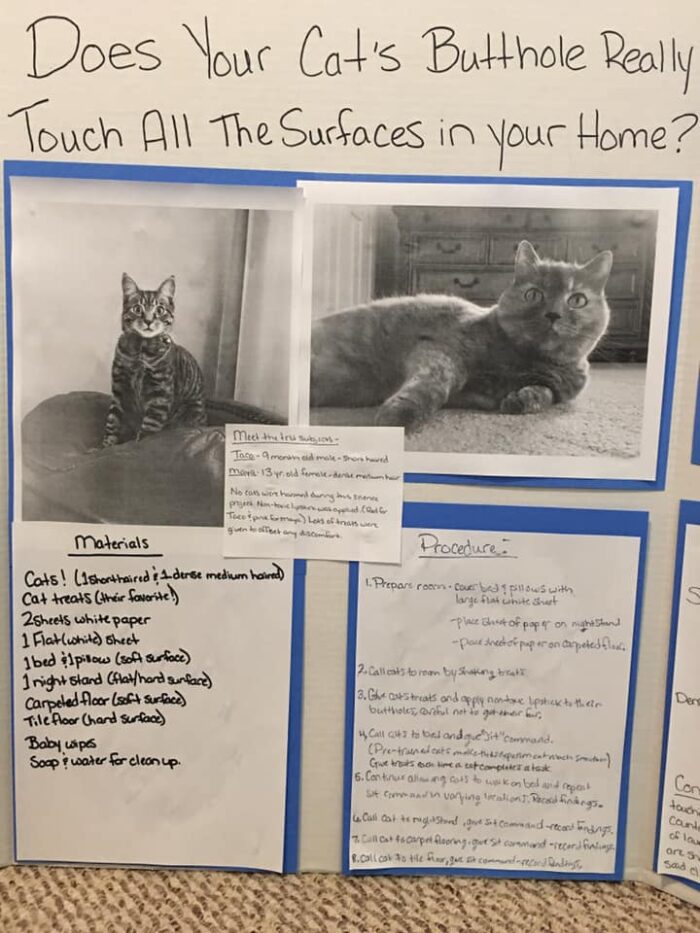 Does Your Cat's Butthole Really
Touch All The Surfaces in your Home?
Meet the test subjects-
Taco - 9 month old male - short haired
Maya - 13 yr. old female - dense medium hair
No cats were harmed during this science
project. Non-toxic lipstick was applied. (Red for
Taco & pink for Maya) Lots of treats were
given to offset any discomfort.
Materials
Cats! (1 shorthaired & 1 dense medium haired)
Cat treats (their favorite!)
2 sheets white paper
1 Flat (white) sheet
1 bed & 1 pillow (soft surface)
1 night stand (flat/hard surface)
Carpeted floor (soft surface)
Tile floor (hard surface)
Baby wipes
Soap & water for clean up.
Procedure:
1. Prepare room - cover bed & pillows with
large flat white sheet
- place sheet of paper on nightstand
- place sheet of paper on carpeted floor.
2. Call cats to room by shaking treats.
3. Give cats treats and apply non-toxic lipstick to their
buttholes, careful not to get their fur.
4. Call cats to bed and give "sit" command.
(Pre-trained cats make this experiment much smoother)
Give treats each time a cat completes a task.
5. Continue allowing cats to walk on bed and repeat
sit command in varying locations. Record findings.
6. Call cat to nightstand, give sit command - record findings.
7. Call cat to carpet flooring, give sit command - record findings.
8. Call cat to tile floor, give sit command - record findings.
S
Den
Con
touch
Count
of lau
are s
said c